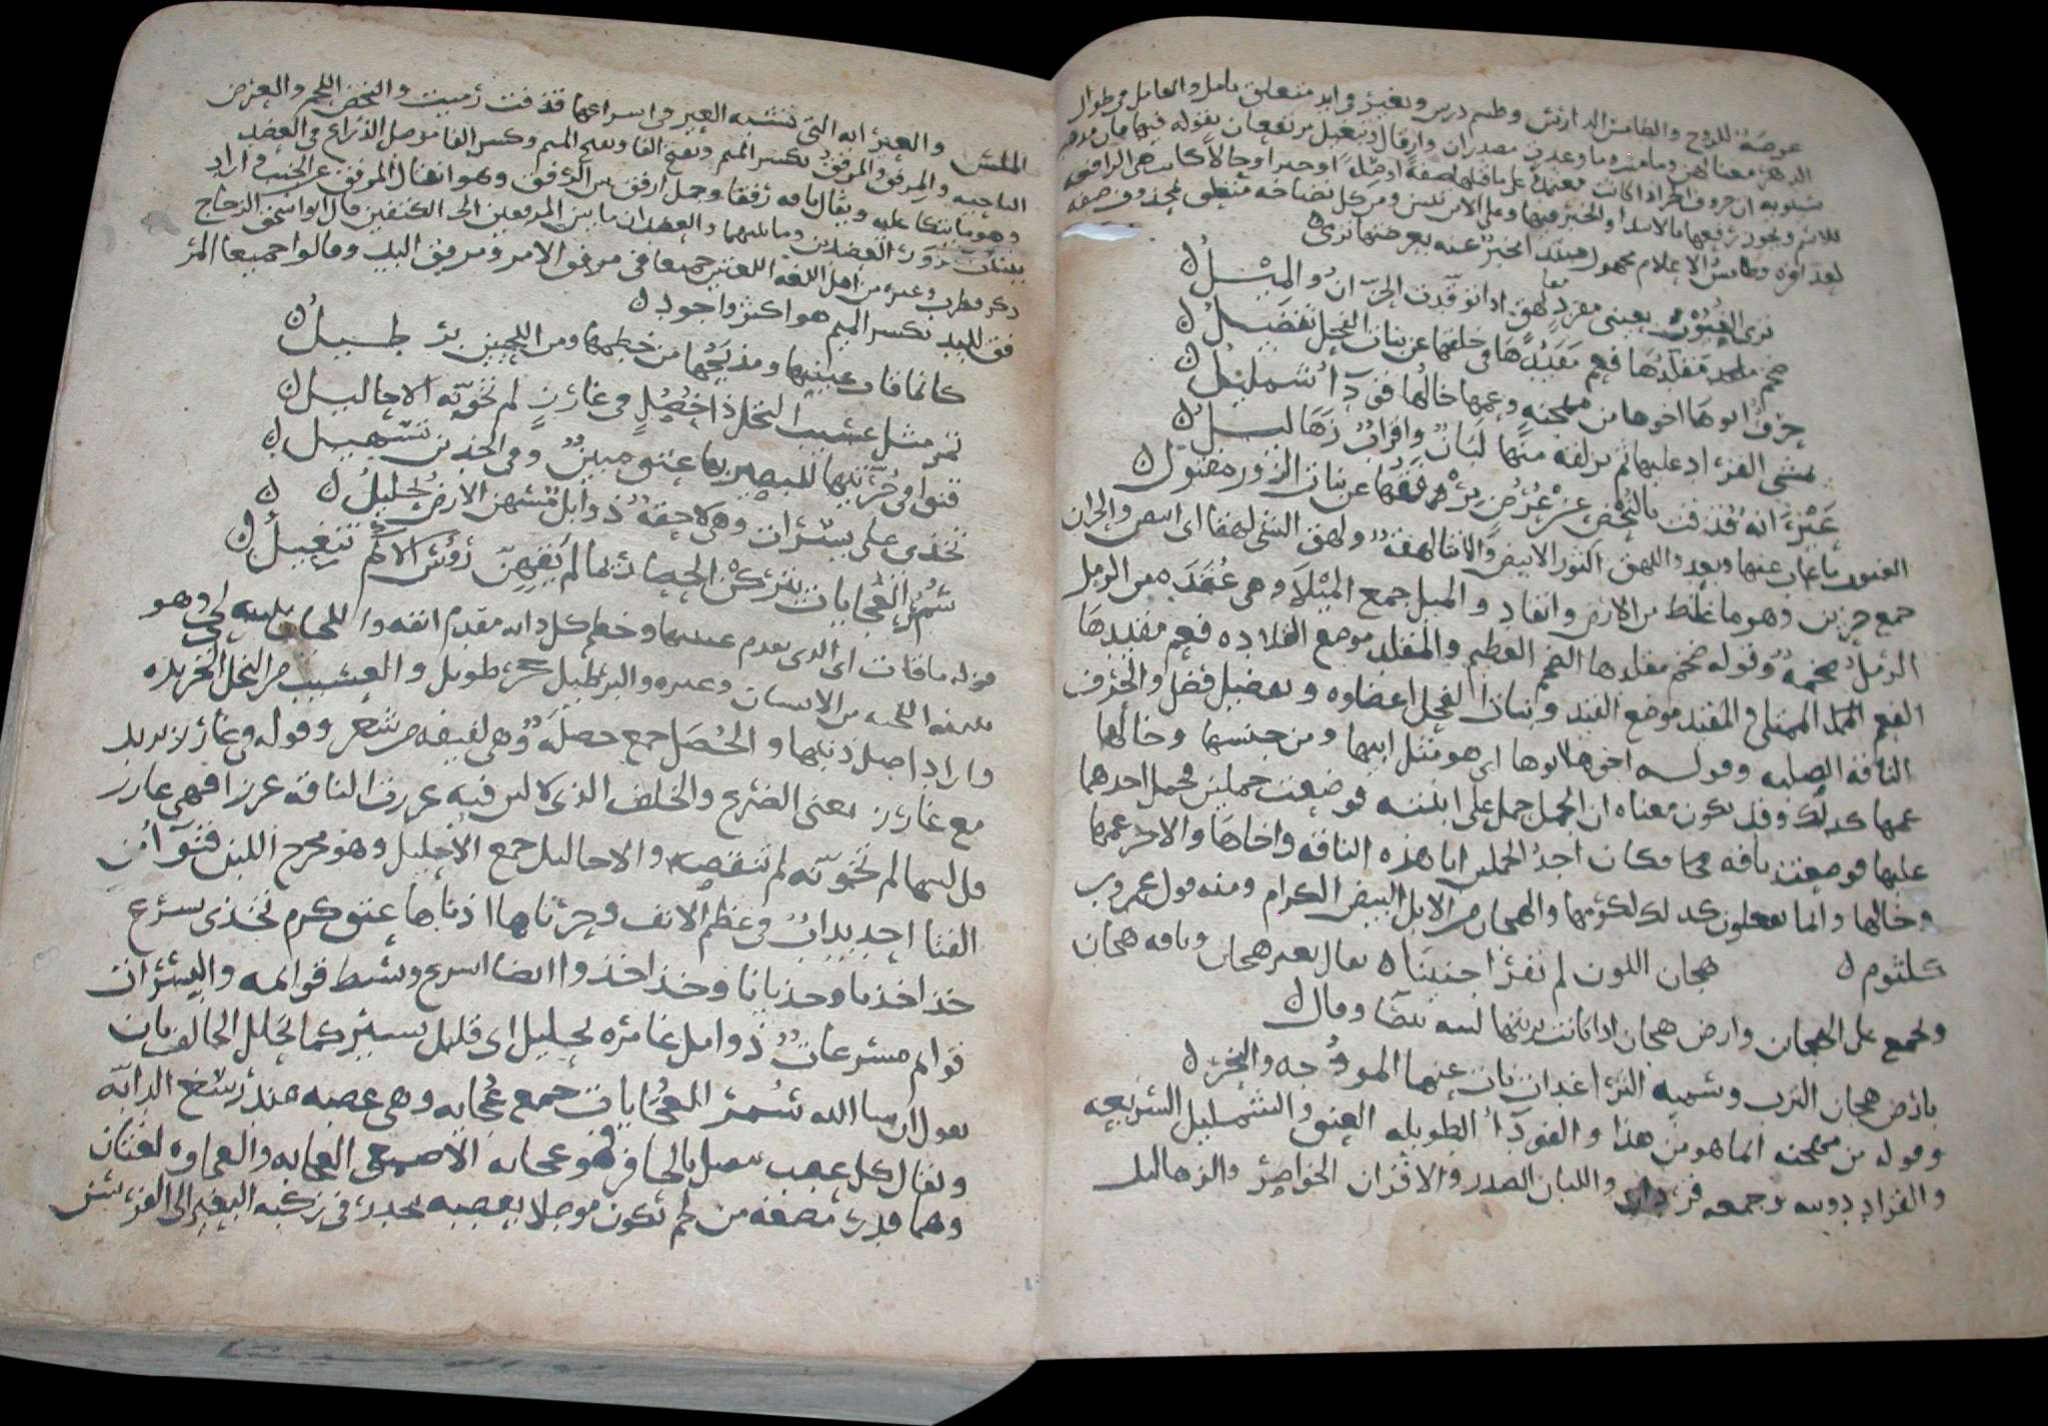 عرضة للروح والطامس الدارس وطم درس وتغير وابد متعلق بامل والعامل في طوال
الدهر معناهن وما وعدن مصدران وارقال وتبغيل مرتفعان بقوله فيها
سيبويه ان حروف الجر اذا كانت معتمدة على ما قبلها صفة او صلة او خبرا او حالا كانت هي الرافعة
للاسم ويجوز رفعها بالابتدا والخبر فيها ومن كل نضاخة متعلق بمحذوف صفة
لعذافرة وطامس الاعلام مجهول مبتدا الخبر عنه بعرضتها
ترمى الغيوب بعينى مفرد لهق اذا توقدت الحزان والميل
ضخم مقلدها فعم مقيدها في خلقها عن بنات الفحل تفضيل
حرف ابوها اخوها من مهجنة وعمها خالها قودآء شمليل
يمشى القراد عليها ثم يزلقه منها لبان واقراب زهاليل
عيرانة قذفت بالنحض عن عرض مرفقها عن بنات الزور مفتول
الغيوب ما غاب عنها وبعد واللهق الثور الابيض والانثا لهقة ولهق الشي لهقا اي ابيض والحزان
جمع حزين وهو ما غلظ من الارض وانقاد والميل جمع الميلا وهي عقدة من الرمل
ضخمة وقوله ضخم مقلدها الضخم العظيم والمقلد موضع القلاده فعم مقيدها
الفعم الممتلى والمقيد موضع القيد وبنات الفحل اعضاوه وتفضيل فضل والحرف
الناقة الصلبه وقوله اخوها ابوها اي هو مثل ابيها ومن جنسها وخالها
عمها كذلك وقد يكون معناه ان الجمل حمل على ابنته فوضعت جملين فحمل احدهما
عليها فوضعت ناقه فكان احد الجملين ابا هذه الناقه واخاها والاخر عمها
وخالها وانما يفعلون كذلك لكرمها والهجان من الابل البيض الكرام ومنه قول عمرو بن
كلثوم هجان اللون لم تقرا جنينا يقال بعير هجان وناقه هجان
ويجمع على الهجان وارض هجان اذا كانت تربتها لينه بيضا وقال
بارض هجان الترب وسميه الثرا غداة نات عنها الموجه والبحر
وقوله من مهجنه انما هو من هذا والقودآء الطويله العنق والشمليل السريعه
والقراد دويبه وجمعه قردان واللبان الصدر والاقراب الخواصر والزهاليل
الملس والعيرانه التي تشبه العير في اسراعها قذفت رميت والنحض اللحم والعرض
الناحيه والمرفق والمرفق بكسر الميم وبفتح الفا وبفتح الميم وكسر الفا موصل الذراع في العضد
وهو ما يتكا عليه ويقال ناقه رفقا وجمل ارفق بين الرفق وهو انفتال المرفق عن الجنب واراد
ببنات الزور العضدين وما يليهما والعضدان ما بين المرفقين الى الكتفين قال ابو اسحق الزجاج
ذكر قطرب وغيره من اهل اللغه اللغتين جميعا في مرفق الامر ومرفق اليد وقالوا جميعا المر
فق لليد بكسر الميم هو اكثر واجود
كانما فات عينيها ومذبحها من خطمها ومن اللحيين برطيل
تمر مثل عسيب النخل ذا خصل في غارز لم تخونه الاحاليل
قنوا في حرتيها للبصير بها عتق مبين وفي الخدين تسهيل
تخذى على يسرات وهي لاحقة ذوابل مسهن الارض تحليل
سمر العجايات يتركن الحصا زيما لم يقهن رؤس الاكم تنعيل
قوله ما فات اي الذي تقدم عينيها وخطم كل دابه مقدم انفه واللحيان
اللحيه من الانسان وغيره والبرطيل حجر طويل والعسيب من النخل الجريده
واراد اصل ذنبها والخصل جمع خصلة وهي لفيفه من شعر وقوله في غارز يريد
مع غارز يعنى الضرع والخلف الذي لا لبن فيه غرزت الناقة غرزا فهي غارز
قل لبنها لم تخونه لم تنقصه والاحاليل جمع الاحليل وهو مخرج اللبن قنوآء من
القنا احديداب في عظم الانف وحرتاها اذناها عتق كرم تخذى تسرع
خذا خذيا وخذيانا وخذا اخذوا ايضا اسرع وبسط قوائمه واليسرات
قوائم مسرعات ذوابل ضامرة تحليل اي قليل يسير كما تحلل الحالف بان
يقول ان شا الله سمر العجايات جمع عجايه وهي عصبه عند رسغ الدابة
ويقال كل عصب يتصل بالحافر فهو عجايه الاصمعي العجايه والعجاوه لغتان
وهما قدر مضغه من لحم تكون موصلا بعصبه تحدر في ركبه البعير الى الفرسن